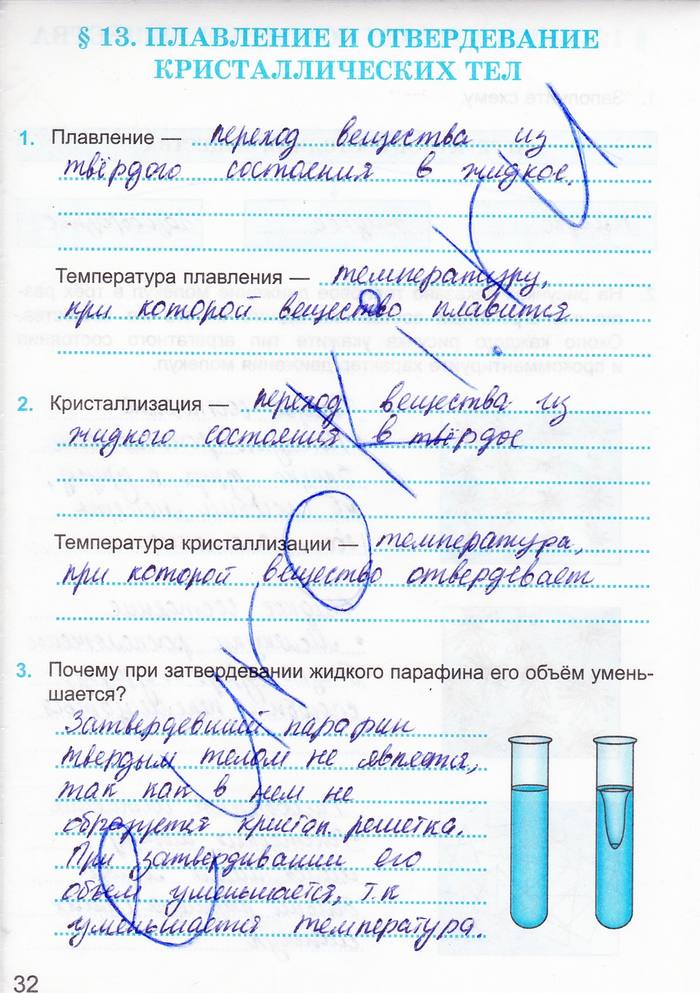 § 13. ПЛАВЛЕНИЕ И ОТВЕРДЕВАНИЕ
КРИСТАЛЛИЧЕСКИХ ТЕЛ
1. Плавление — переход вещества из
твёрдого состояния в жидкое.
Температура плавления — температуру,
при которой вещество плавится
2. Кристаллизация — переход вещества из
жидкого состояния в твёрдое
Температура кристаллизации — температура,
при которой вещество отвердевает
3. Почему при затвердевании жидкого парафина его объём умень-
шается?
Затвердевший парафин
твердым телом не является,
так как в нем не
образуется кристал. решетка.
При затвердивании его
объем уменьшается, т.к
уменьшается температура.
32